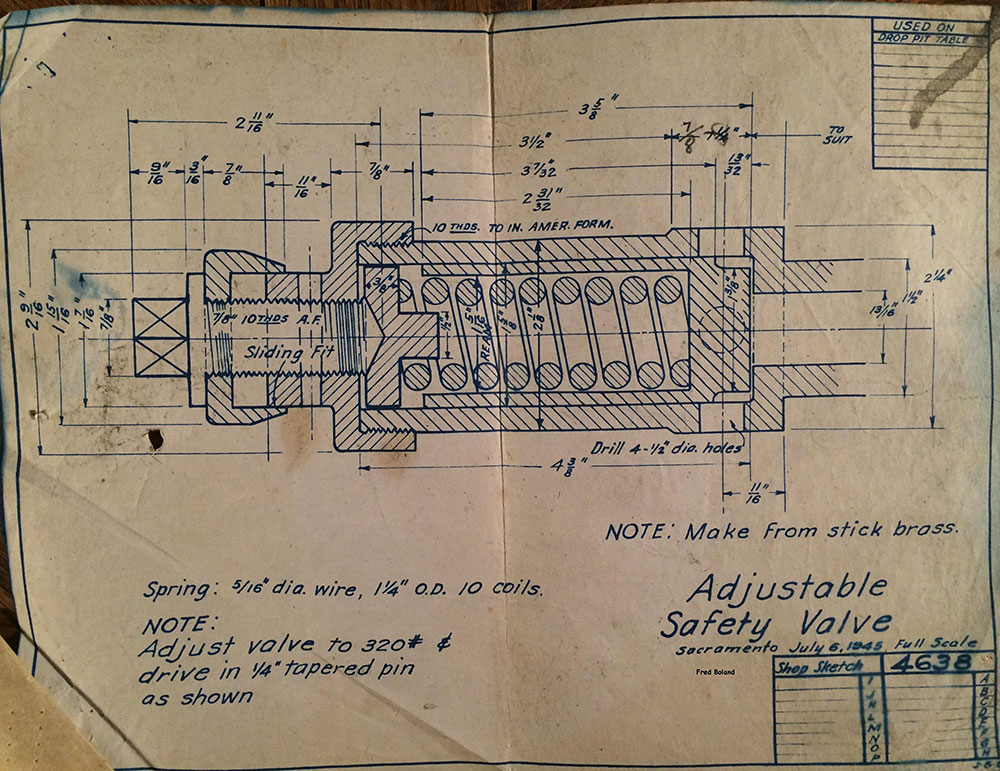 USED ON
DROP PIT TABLE
3 5/8"
2 11/16"
7/8
3 1/2"
TO SUIT
9/16"
3/16"
7/8"
7/8"
3 7/32"
13/32"
11/16"
2 31/32"
10 THDS. TO IN. AMER. FORM.
2 9/16"
1 15/16"
1 7/16"
7/8"
7/8" 10 THDS A.F.
Sliding Fit
1/2"
REAM
13/16"
1 1/2"
2 1/4"
Drill 4-1/2" dia. holes
4 3/8"
11/16"
NOTE: Make from stick brass.
Spring: 5/16" dia. wire, 1 1/4" O.D. 10 coils.
NOTE:
Adjust valve to 320# &
drive in 1/4" tapered pin
as shown
Adjustable
Safety Valve
Sacramento July 6, 1945 Full Scale
Shop Sketch 4638
Fred Boland
I
J
K
L
M
N
O
P
A
B
C
D
E
F
G
H